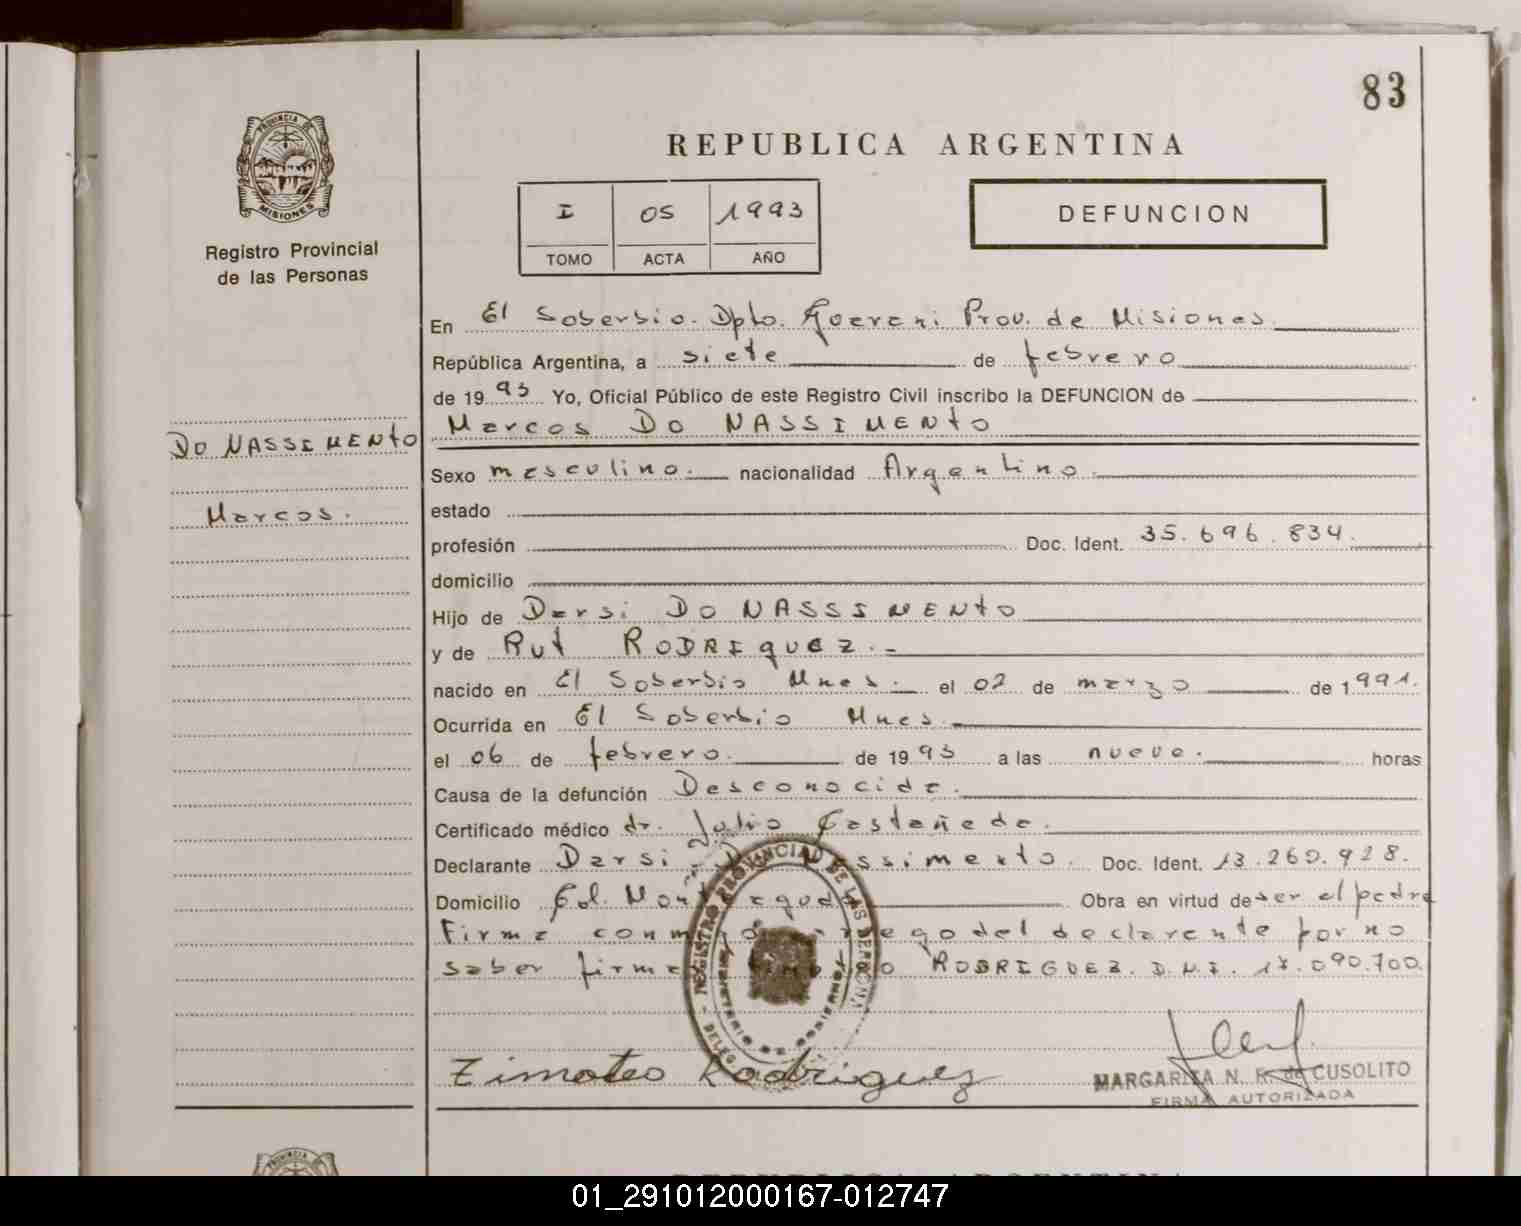 83
PROVINCIA DE
MISIONES
Registro Provincial
de las Personas
REPUBLICA ARGENTINA
I 05 1993
TOMO ACTA AÑO
DEFUNCION
En El Soberbio. Dpto. Guarani Prov. de Misiones.
República Argentina, a siete de febrero
de 1993 Yo, Oficial Público de este Registro Civil inscribo la DEFUNCION de
DO NASSIMENTO
Marcos.
Marcos DO NASSIMENTO
Sexo masculino. nacionalidad Argentino.
estado
profesión Doc. Ident. 35.696.834.
domicilio
Hijo de Darsi DO NASSIMENTO
y de Rut RODRIGUEZ.-
nacido en El Soberbio Mnes. el 02 de marzo de 1991.
Ocurrida en El Soberbio Mnes.
el 06 de febrero. de 1993 a las nueve. horas
Causa de la defunción Desconocida.
Certificado médico dr. Julio Castañeda.
Declarante Darsi Do Nassimento. Doc. Ident. 13.260.928.
Domicilio Col. Monteagudo Obra en virtud de ser el padre
Firma conmigo a ruego del declarante por no
saber firmar RODRIGUEZ. D.N.I. 17.090.700.
REGISTRO PROVINCIAL DE LAS PERSONAS
MINISTERIO DE GOBIERNO
DELEG
Timoteo Rodriguez
MARGARITA N. R. de CUSOLITO
FIRMA AUTORIZADA
REPUBLICA ARGENTINA
01_291012000167-012747